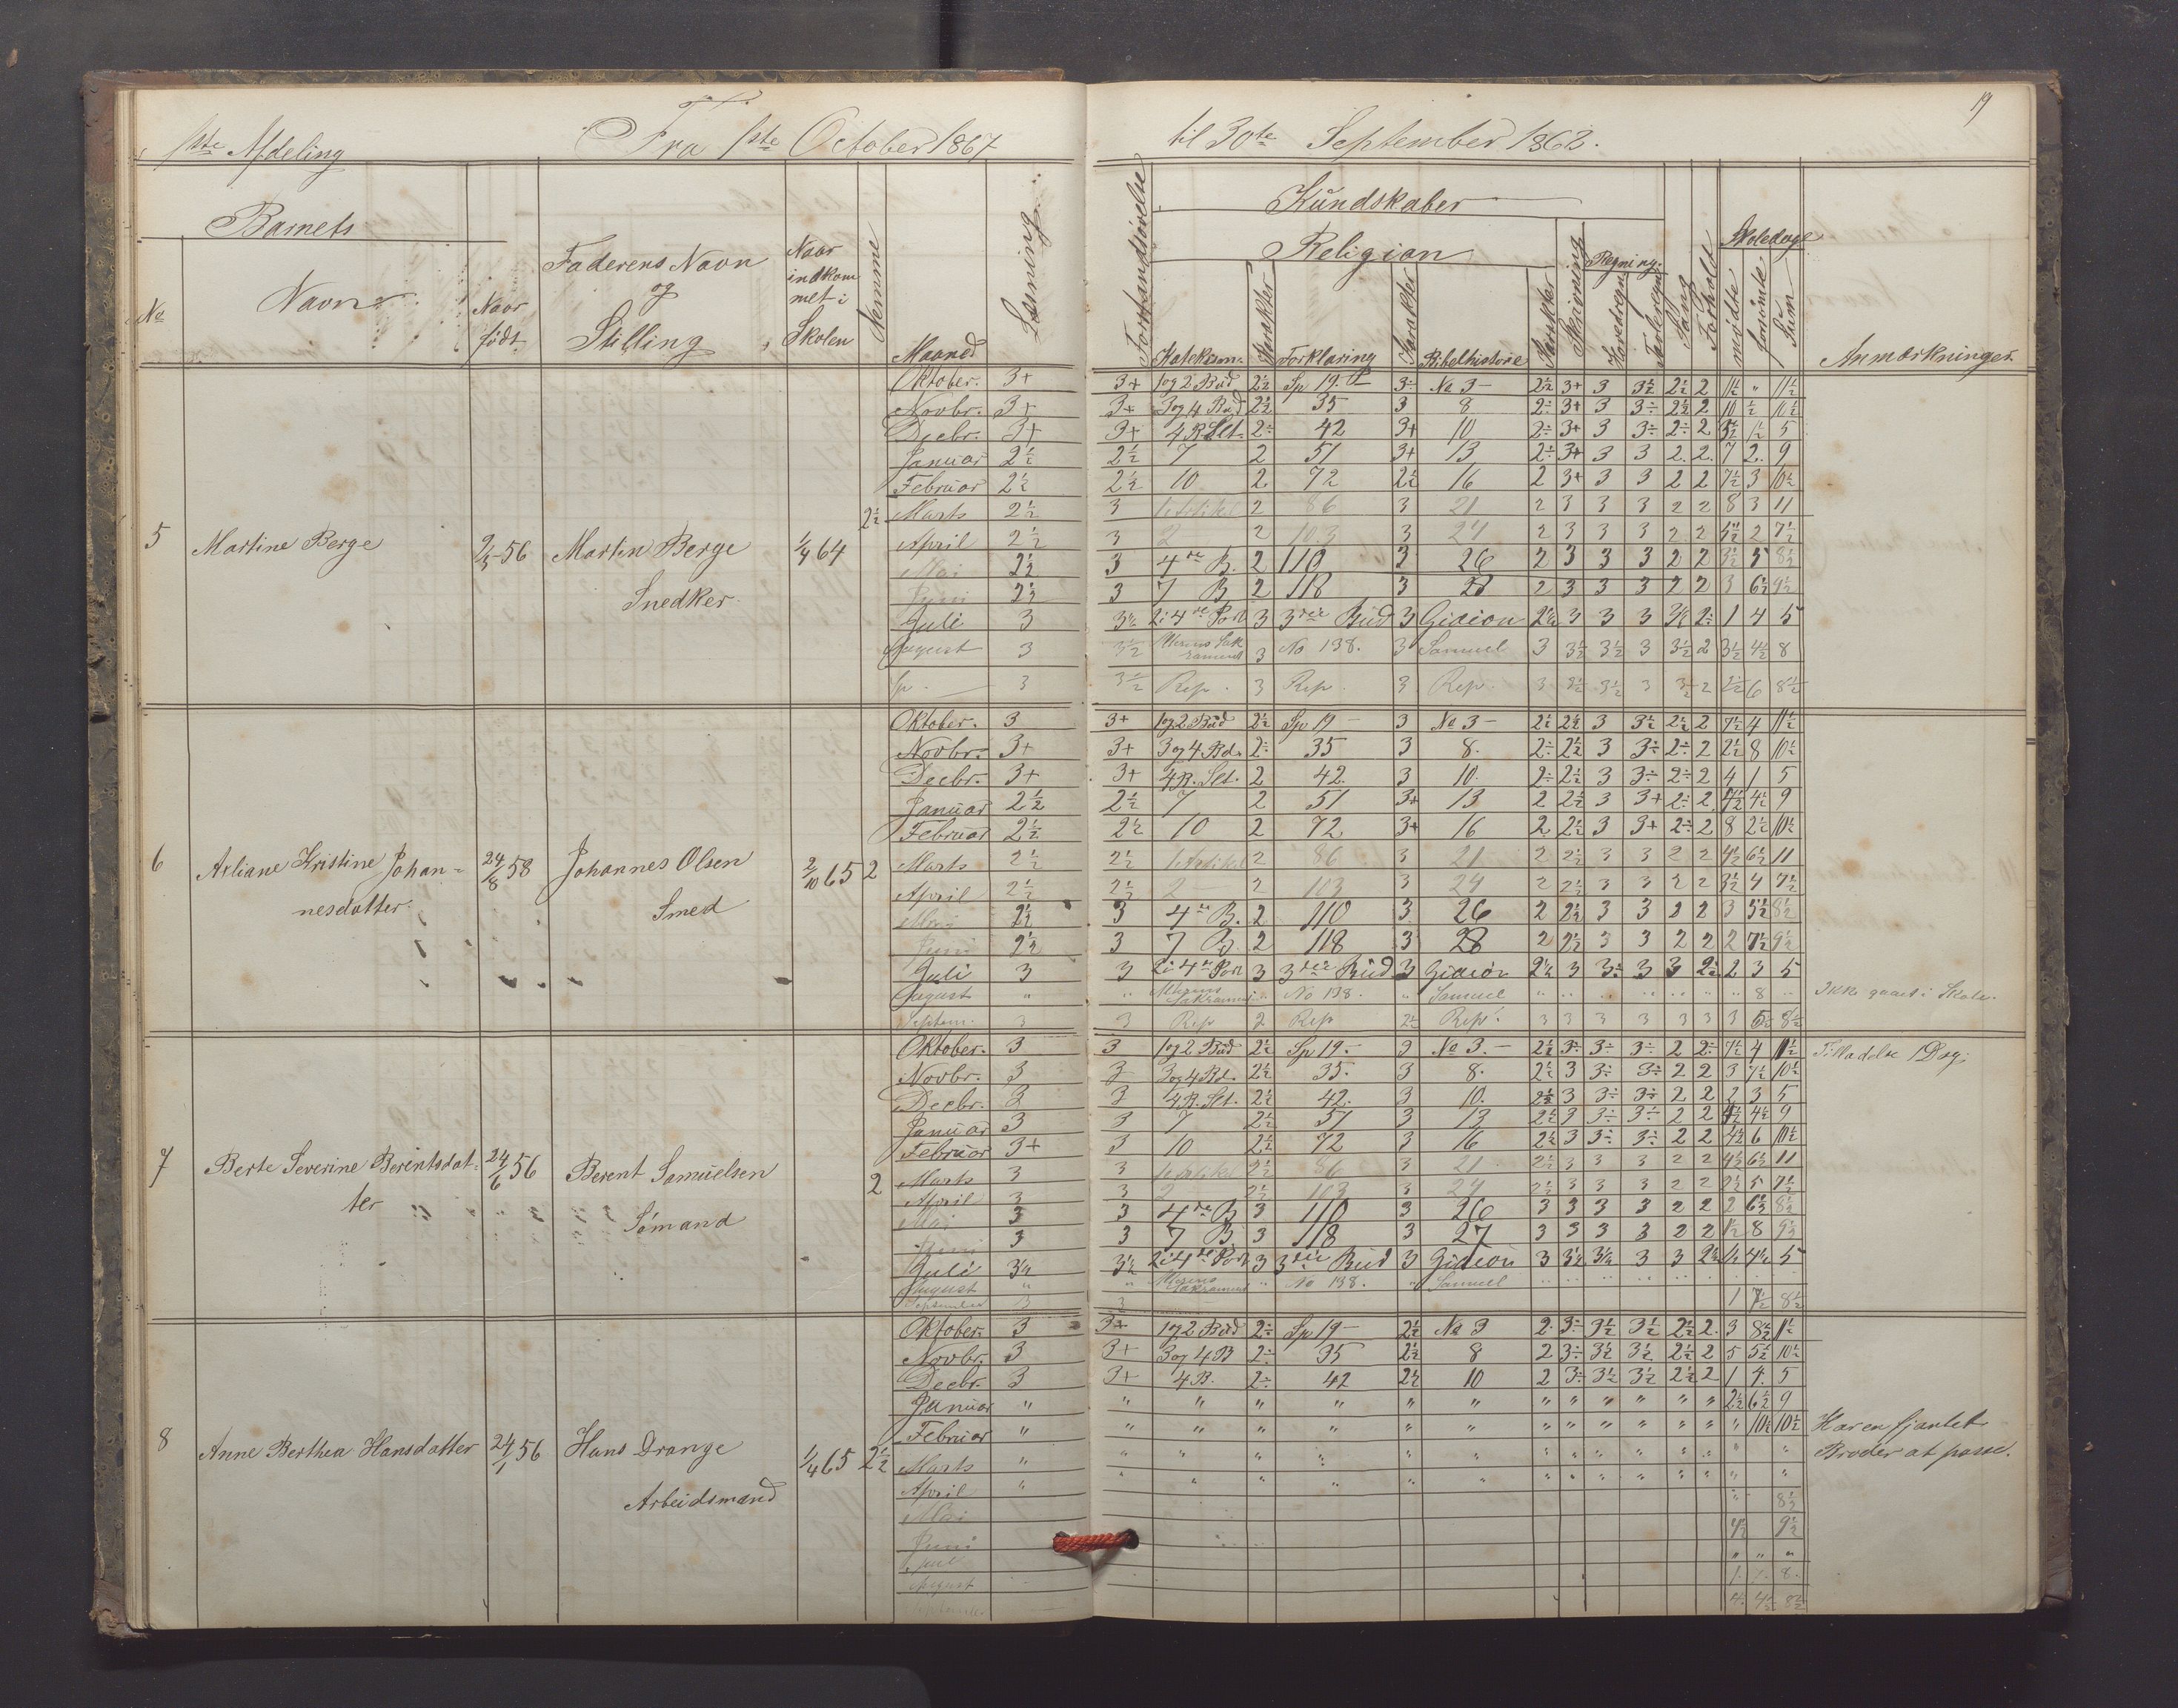 19
1ste Afdeling Fra 1ste October 1867 til 30te September 1868.
Barnets
No Navn Naar født Faderens Navn og Stilling Naar indkommet i Skolen Nemme Maaned Læsning Forstandsøvelse Kundskaber Religion Katekism. Karakter Forklaring Karakter Bibelhistorie Karakter Skrivning Regning Sang Forhold Skoledage mødte forsømte Sum Anmærkninger
5 Martine Berge 56 Martin Berge Snedker 1/4 64 2½
Oktober. 3+ 3+ 1 og 2 Bud 2½ Sp 19. 3÷ No 3 – 2½ 3+ 3 3½ 2½ 2 11½ " 11½
Novbr. 3+ 3+ 3 og 4 Bud 2½ 35 3 8 2÷ 3+ 3 3÷ 2½ 2 10 ½ 10½
Decbr. 3+ 3+ 4 B. Slt. 2÷ 42 3+ 10 2÷ 3+ 3 3÷ 2÷ 2 3½ 1½ 5
Januar 2½ 2½ 7 2 51 3+ 13 2÷ 3+ 3 3 2 2 7 2 9
Februar 2½ 2½ 10 2 72 2½ 16 2 3+ 3 3 2 2 7½ 3 10½
Marts 2½ 3 1 Artikel 2 86 3 21 2 3 3 3 2 2 8 3 11
April 2½ 3 2 2 103 3 24 2 3 3 3 2 2 5½ 2 7½
Mai 2½ 3 4de B. 2 110 3 26 2 3 3 3 2 2 3½ 5 8½
Juni 2½ 3 7 B 2 118 3 28 2 3 3 3 2 2 3 6½ 9½
Juli 3 3½ 2 i 4de Part 3 3die Bud 3 Gideon 2½ 3 3 3 3½ 2÷ 1 4 5
August 3 3½ Alterens Sakrament 3 No 138. 3 Samuel 3 3½ 3½ 3 3½ 2 3½ 4½ 8
Sp. 3 3½ Rep. 3 Rep. 3 Rep. 3 3½ 3½ 3 3½ 2 2½ 6 8½
6 Arliane Kristine Johannesdatter 24/8 58 Johannes Olsen Smed 2/10 65 2
Oktober. 3 3+ 1 og 2 Bud 2½ Sp 19 – 3 No 3 – 2½ 2½ 3 3½ 2½ 2 7½ 4 11½
Novbr. 3+ 3+ 3 og 4 Bd. 2÷ 35 3 8. 2÷ 2½ 3 3÷ 2÷ 2 2½ 8 10½
Decbr. 3+ 3+ 4 B. Slt. 2 42. 3 10. 2÷ 2½ 3 3÷ 2÷ 2 4 1 5
Januar 2½ 2½ 7 2 51 3+ 13 2 2½ 3 3+ 2÷ 2 4½ 4½ 9
Februar 2½ 2½ 10 2 72 3+ 16 2 2½ 3 3+ 2÷ 2 8 2½ 10½
Marts 2½ 2½ 1 Artikel 2 86 3 21 2 2½ 3 3 2 2 4½ 6½ 11
April 2½ 2½ 2 2 103 3 24 2 2½ 3 3 2 2 3½ 4 7½
Mai 2½ 3 4de B. 2 110 3 26 2 2½ 3 3 2 2 3 5½ 8½
Juni 2½ 3 7 B. 2 118 3 28 2 2½ 3 3 2 2 2 7½ 9½
Juli 3 3 2 i 4de Part 3 3die Bud 3 Gideon 2½ 3 3÷ 3 3 2½ 2 3 5
August " " Alterens Sakrament " No 138. " Samuel " " " " " " " 8 " Ikke været i Skole.
Septem. 3 3 Rep 2 Rep 2½ Rep. 3 3 3 3 3 3 3 5½ 8½
7 Berte Severine Berintsdatter 24/6 56 Berent Samuelsen Sømand 2
Oktober. 3 3 1 og 2 Bud 2½ Sp 19. – 3 No 3. – 2½ 3÷ 3÷ 3÷ 2 2÷ 7½ 4 11½ Tilladelse 1 Dag.
Novbr. 3 3 3 og 4 Bd. 2½ 35. 3 8. 2½ 3 3÷ 3÷ 2 2 3 7½ 10½
Decbr. 3 3 4 B. Slt. 2½ 42. 3 10. 2½ 3 3÷ 3÷ 2 2 2 3 5
Januar 3 3 7 2½ 51 3 13 2½ 3 3÷ 3÷ 2 2 4½ 4½ 9
Februar 3+ 3 10 2½ 72 3 16 2½ 3 3÷ 3÷ 2 2 4½ 6 10½
Marts 3 3 1 Artikel 2½ 86 3 21 2½ 3 3 3 2 2 4½ 6½ 11
April 3 3 2 2½ 103 3 24 2½ 3 3 3 2 2 2½ 5 7½
Mai 3 3 4de B 3 110 3 26 3 3 3 3 2 2 2 6½ 8½
Juni 3 3 7 B. 3 118 3 27 3 3 3 3 2 2 1½ 8 9½
Juli 3½ 3½ 2 i 4de Part 3 3die Bud 3 Gideon 3 3½ 3½ 3 3 2½ ½ 4½ 5
August " " Alterens Sakrament " No 138. " Samuel
September 3 3 1 7½ 8½
8 Anne Berthea Hansdatter 24/1 56 Hans Drange Arbeidsmand 1/4 65 2½
Oktober. 3 3+ 1 og 2 Bud 2÷ Sp 19 – 2½ No 3 2. 3÷ 3½ 3½ 2½ 2. 3 8½ 11½
Novbr. 3 3+ 3 og 4 B 2÷ 35 2½ 8 2 3÷ 3½ 3½ 2½ 2 5 5½ 10½
Decbr. 3 3+ 4 B. 2÷ 42 2½ 10 2 3÷ 3½ 3½ 2½ 2 1 4. 5
Januar " " " " " " " " " " " " " 2½ 6½ 9
Februar " " " " " " " " " " " " " " 10½ 10½ Har en fjantet
Marts " " " " " " " " " " " " " " " Broder at passe.
April " " " " " " " " " " " " " " "
Mai " 8½
Juni 9½
Juli " " "
August 1. 7. 8.
September 4. 4½ 8½